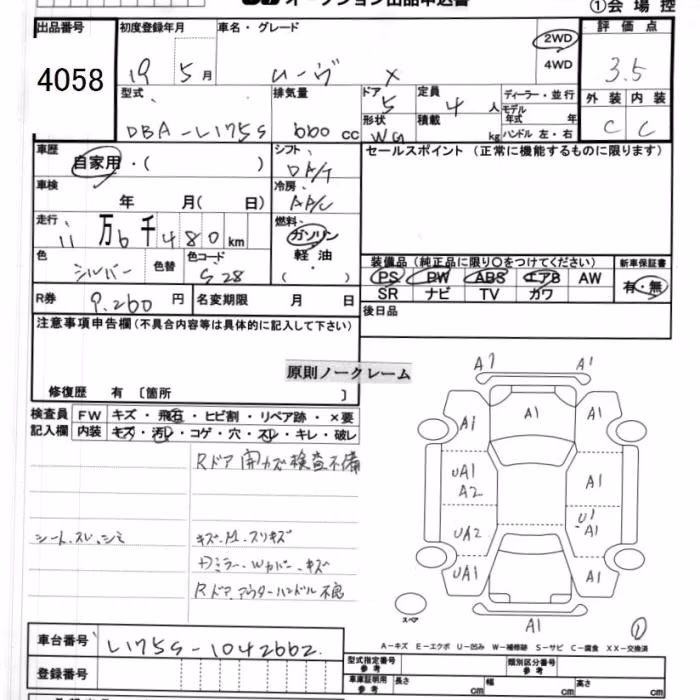 オークション出品申込書
①会場控
出品番号 初度登録年月 車名・グレード 2WD 評価点
4058 19 5月 ムーヴ X 4WD 3.5
型式 排気量 ドア 定員 ディーラー・並行 外装 内装
5 4人 モデル年式 年
DBA-L175S 660cc 形状 積載 ハンドル 左・右 C C
WG kg
車歴 シフト セールスポイント(正常に機能するものに限ります)
自家用・( )
車検 冷房
年 月( 日) A/C
走行 燃料
11万6千480km ガソリン
色 色替 色コード 軽油 装備品(純正品に限り○をつけてください) 新車保証書
シルバー S28 ( ) PS PW ABS エアB AW 有・無
R券 9,260円 名変期限 月 日 SR ナビ TV カワ
注意事項申告欄(不具合内容等は具体的に記入して下さい) 後日品
原則ノークレーム
修復歴 有〔箇所 〕
検査員 FW キズ・飛石・ヒビ割・リペア跡・×要
記入欄 内装 キズ・汚レ・コゲ・穴・スレ・キレ・破レ
Rドア 開カズ 検査不備
シート、スレ、シミ
Rドア アウターハンドル不良
A1
A1 A1
A1
UA1 A1
A2
UA2 U1
A1
UA1 A1
スペア
A1
①
A-キズ E-エクボ U-凹み W-補修跡 S-サビ C-腐食 XX-交換済
車台番号 L175S-1042662
登録番号
型式指定番号 参考 類別区分番号 参考
車庫証明用 参考 長さ cm 幅 cm 高さ cm